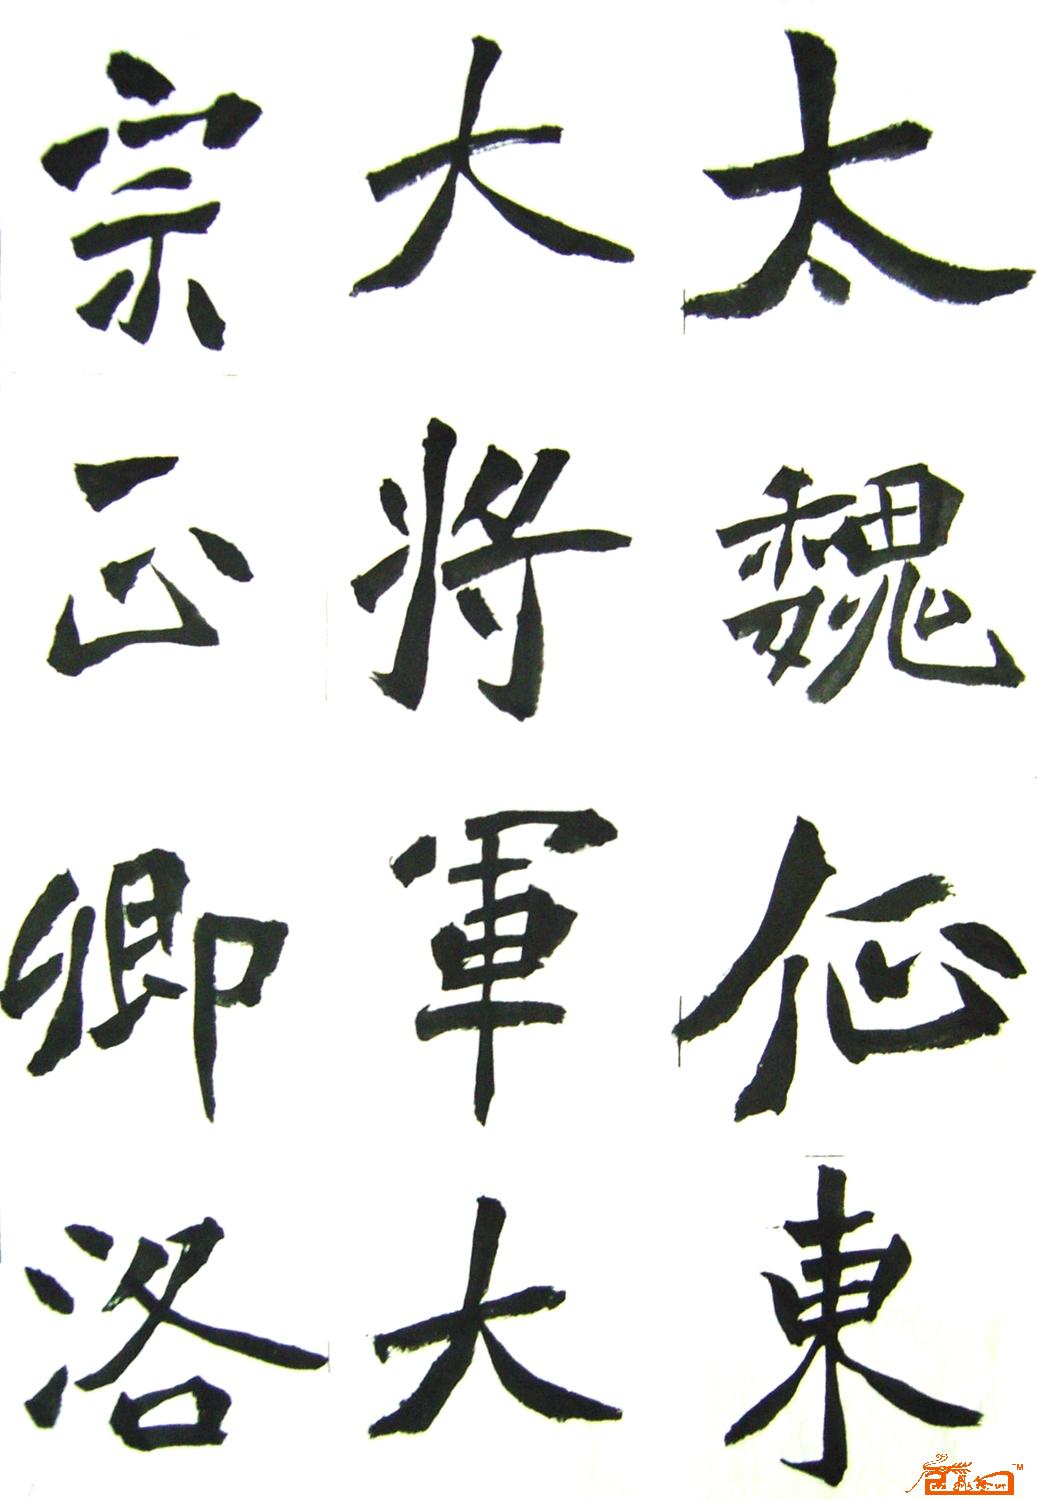 太魏征東
大將軍大
宗正卿洛